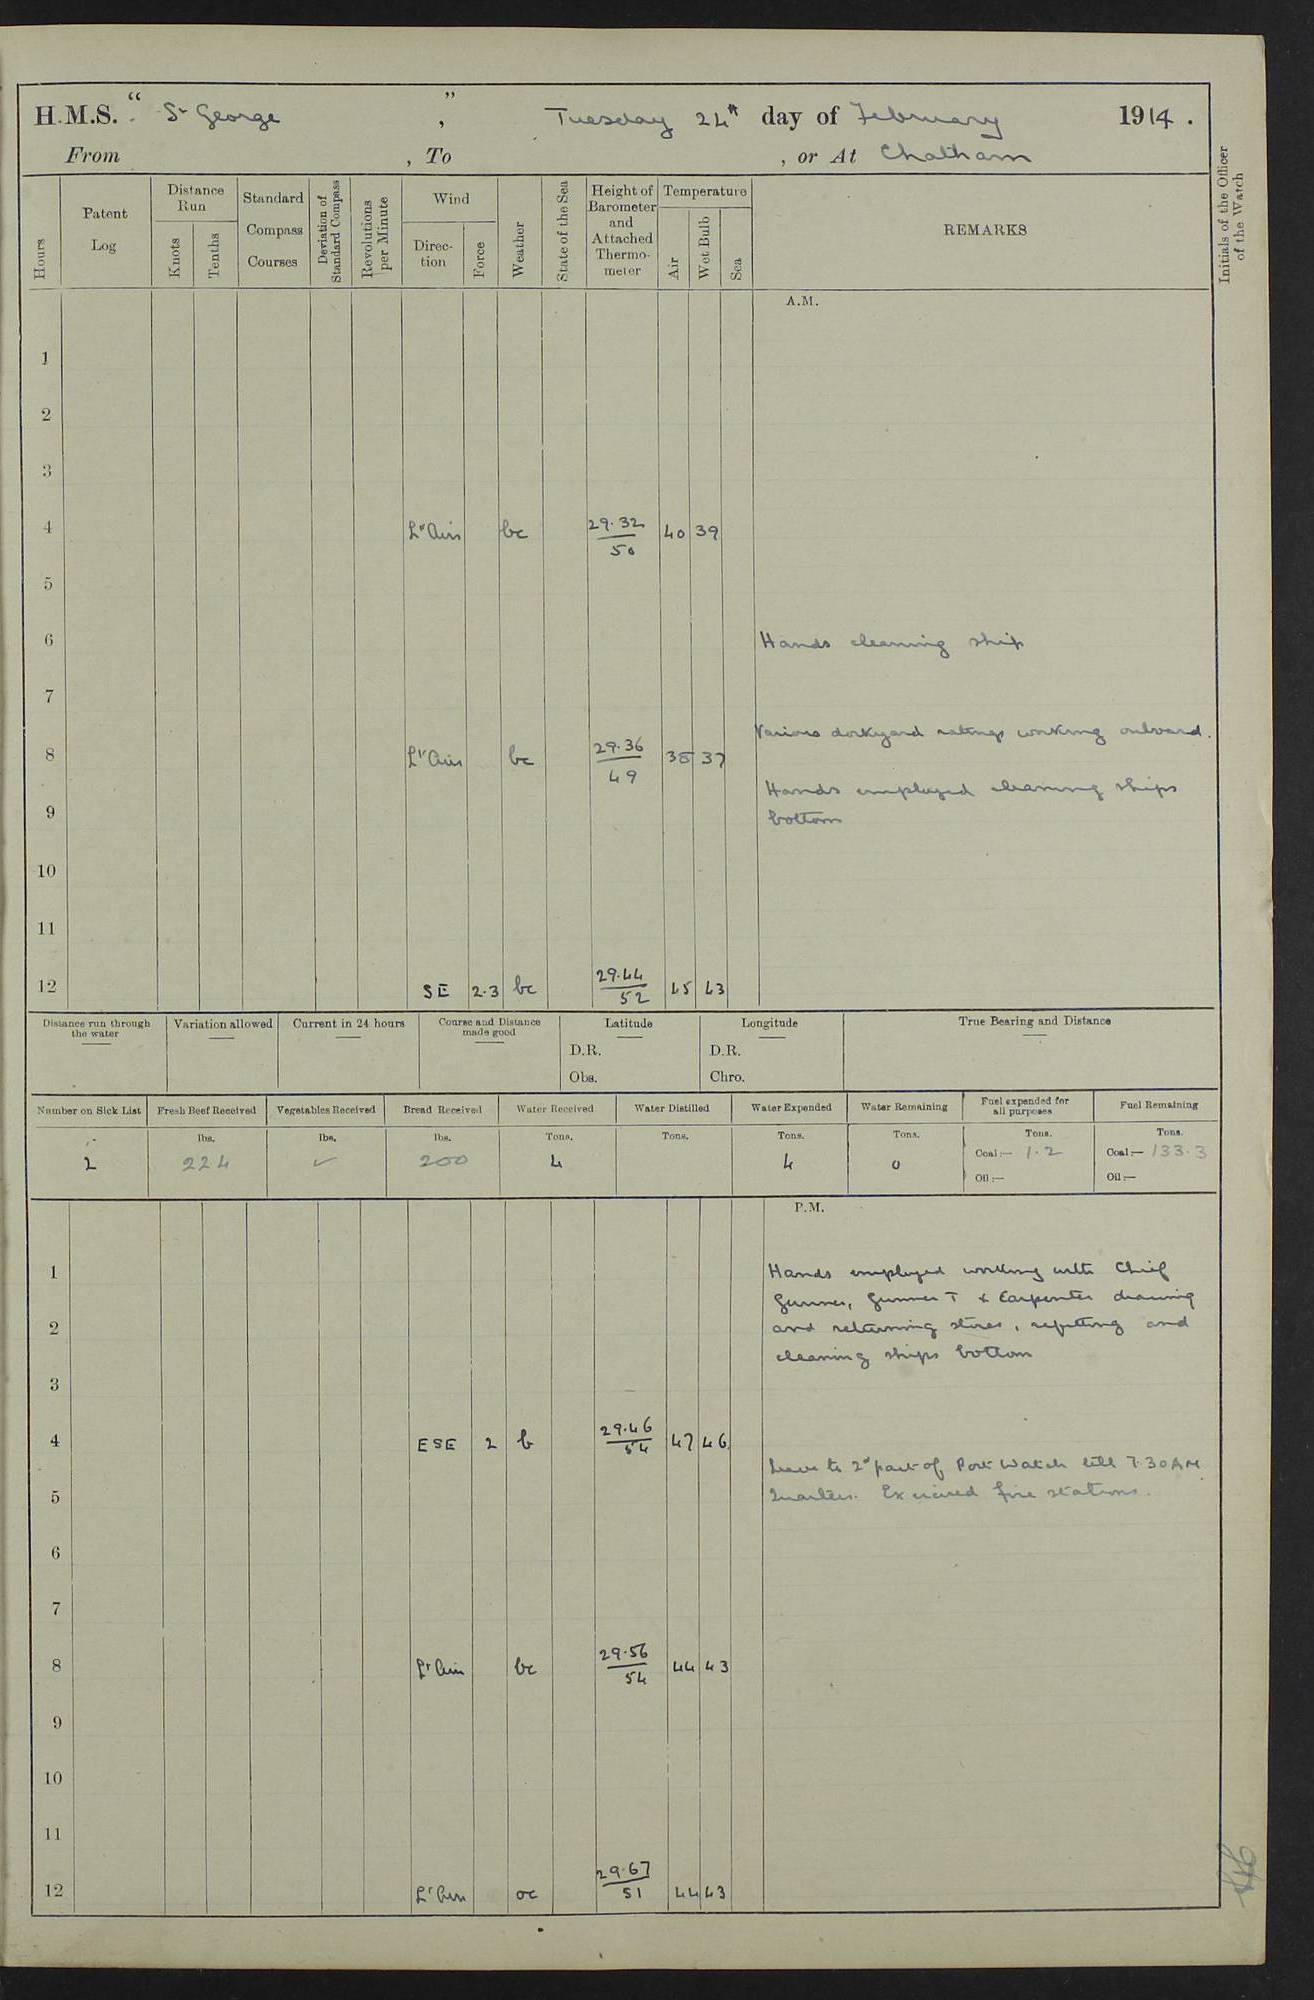 H.M.S. " St George ", Tuesday 24th day of February 1914.
From , To , or At Chatham
Hours
Patent Log
Distance Run
Knots
Tenths
Standard Compass Courses
Deviation of Standard Compass
Revolutions per Minute
Wind
Direction
Force
Weather
State of the Sea
Height of Barometer and Attached Thermometer
Temperature
Air
Wet Bulb
Sea
REMARKS
Initials of the Officer of the Watch
A.M.
1
2
3
4 Lt Airs bc 29.32/50 40 39
5
6 Hands cleaning ship
7
Various dockyard ratings working onboard.
8 Lt Airs bc 29.36/49 38 37
Hands employed cleaning ships
9 bottom
10
11
12 SE 2.3 bc 29.44/52 45 43
Distance run through the water
Variation allowed
Current in 24 hours
Course and Distance made good
Latitude
D.R.
Obs.
Longitude
D.R.
Chro.
True Bearing and Distance
Number on Sick List Fresh Beef Received Vegetables Received Bread Received Water Received Water Distilled Water Expended Water Remaining Fuel expended for all purposes Fuel Remaining
lbs. lbs. lbs. Tons. Tons. Tons. Tons. Tons. Tons.
2 224 ✓ 200 4 4 0 Coal:— 1.2 Coal:— 133.3
Oil:— Oil:—
P.M.
1 Hands employed working with Chief
Gunner, Gunner T & Carpenter drawing
2 and returning stores, refitting and
cleaning ships bottom
3
4 ESE 2 b 29.46/54 47 46
Leave to 2nd part of Port Watch till 7.30 AM
5 Quarters. Exercised fire stations.
6
7
8 Lt Airs bc 29.56/54 44 43
9
10
11
12 Lt Airs oc 29.67/51 44 43